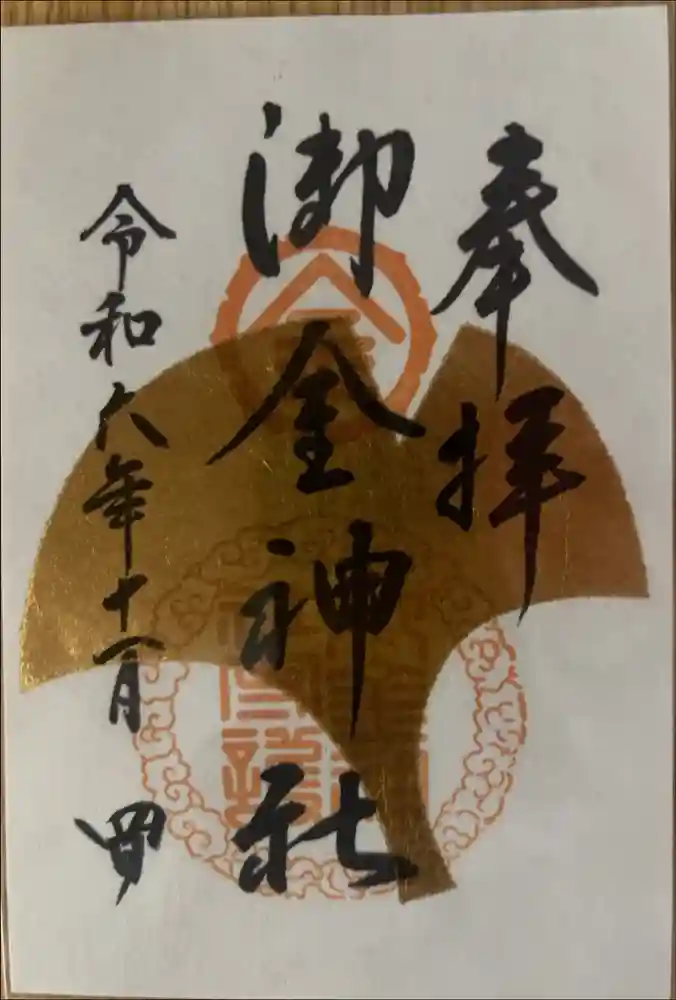 奉拝
御金神社
令和六年十一月
金